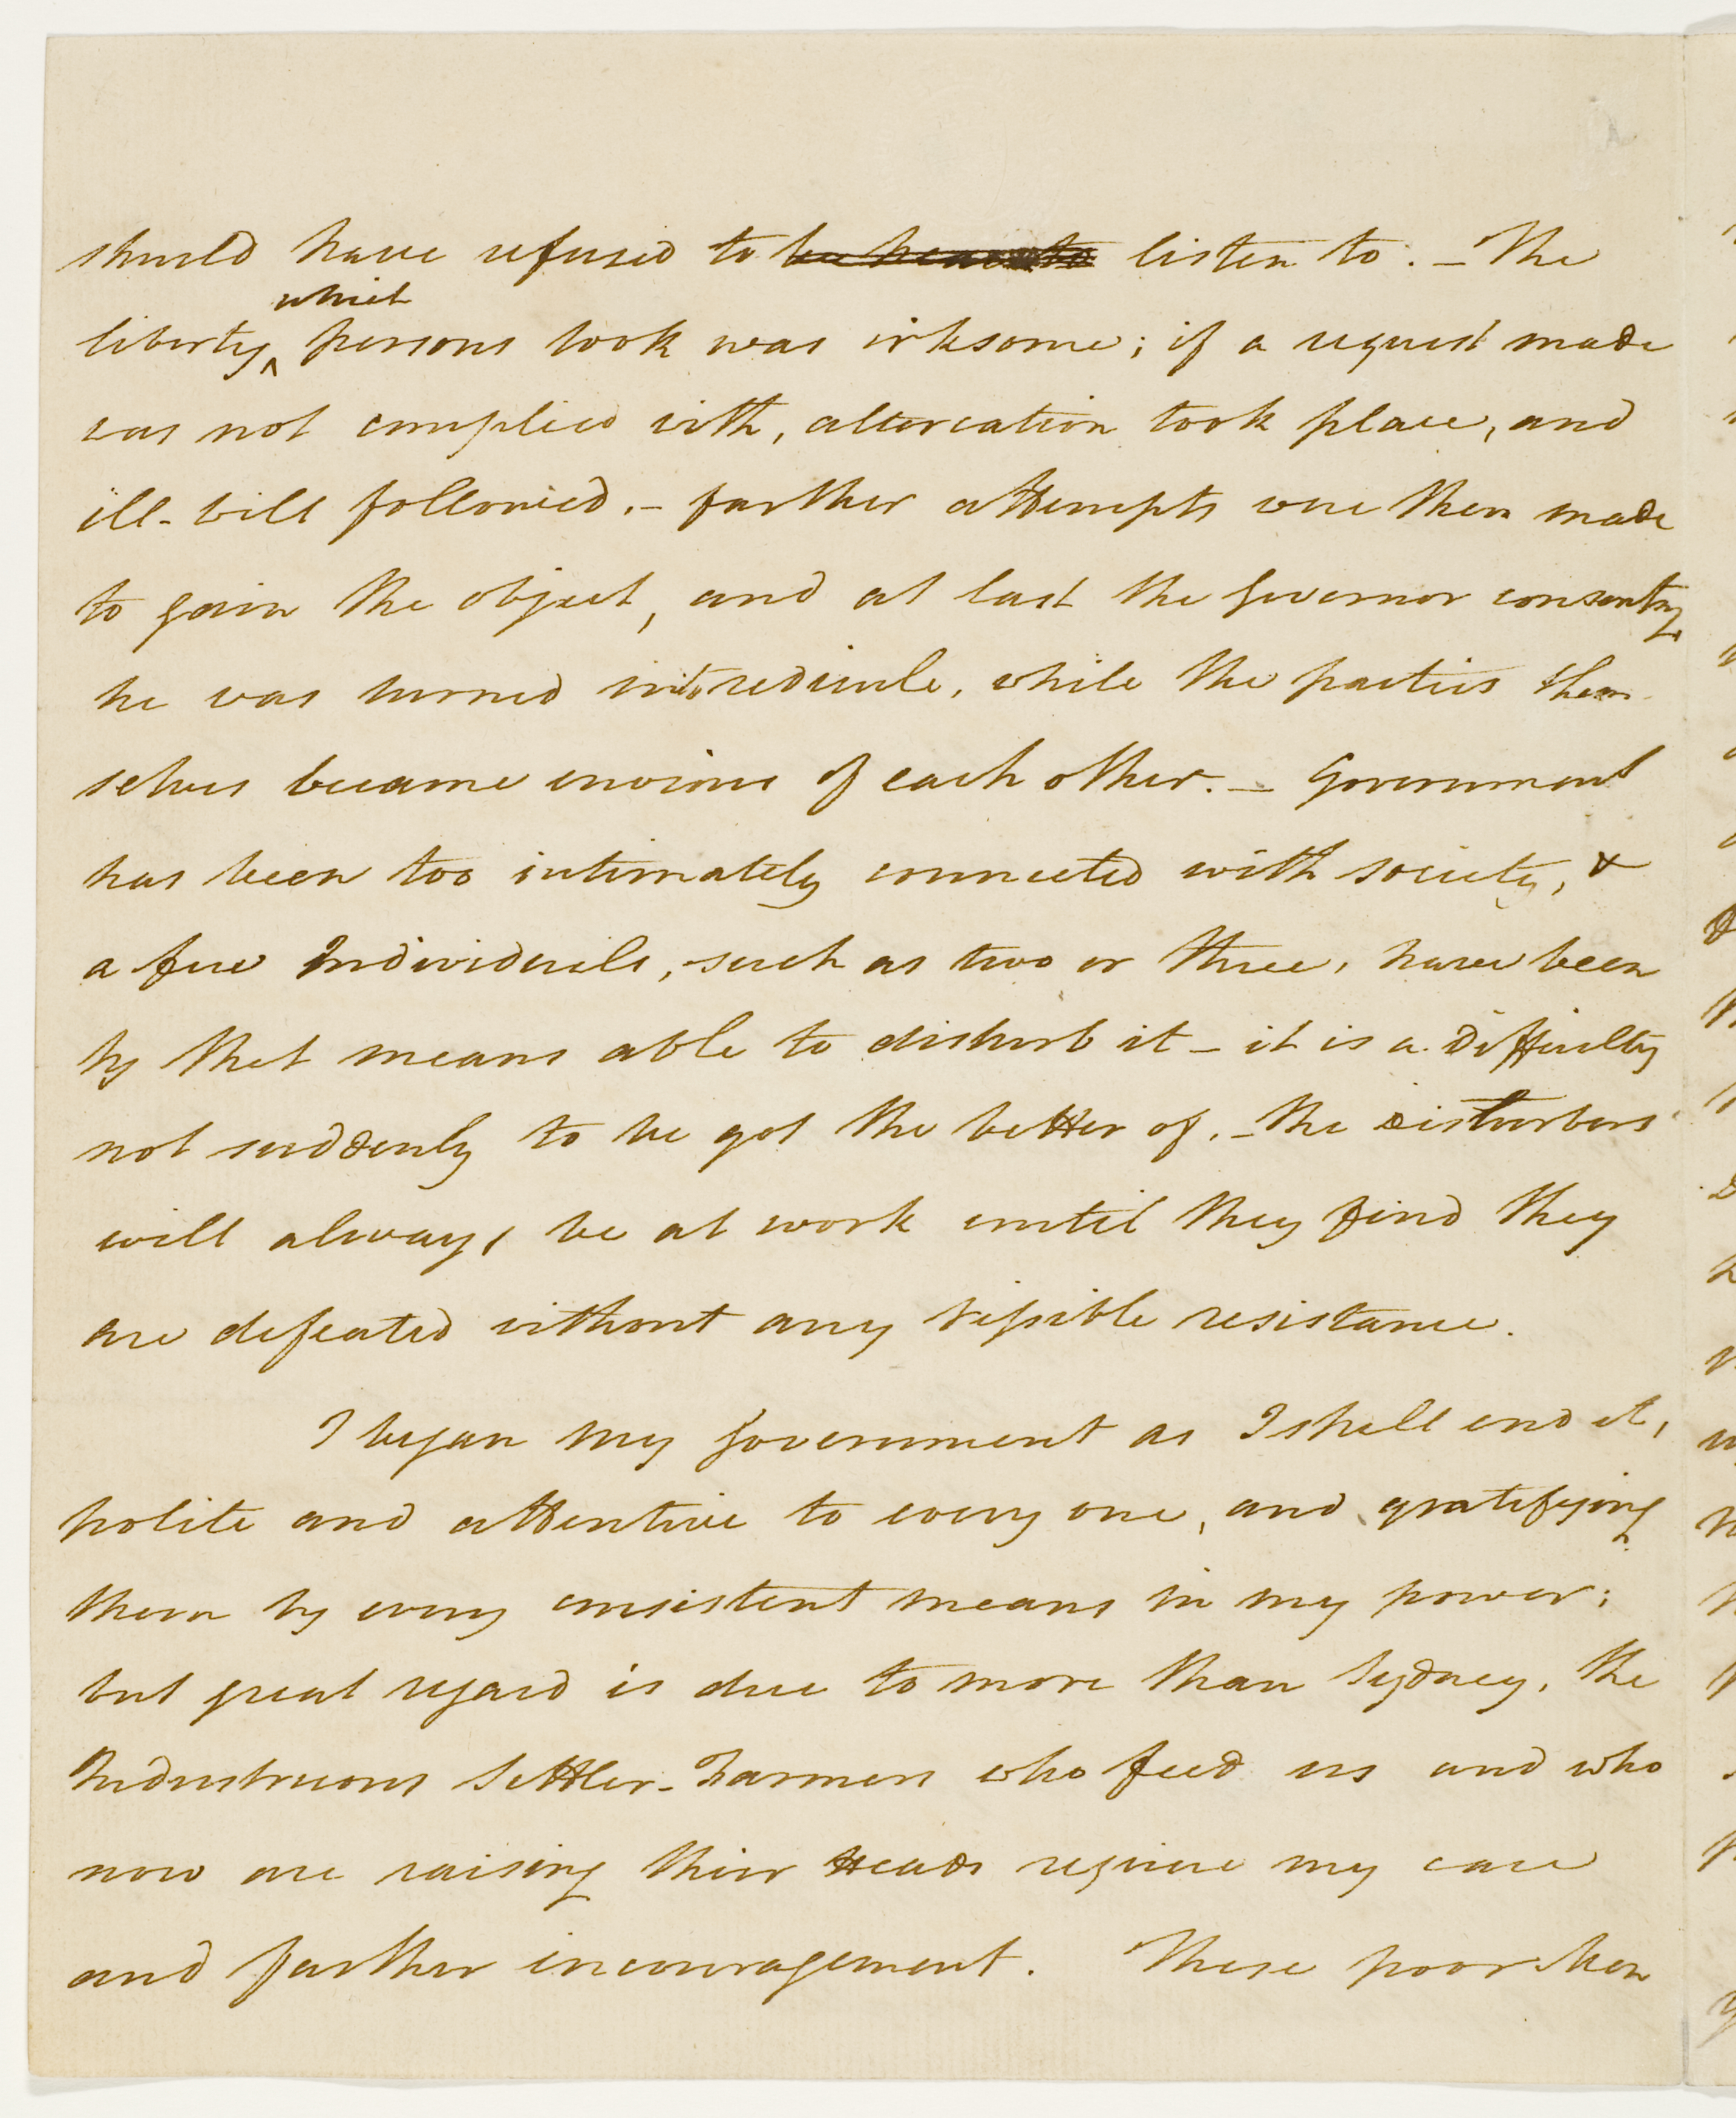 should have refused to listen to. – The
liberty which persons took was irksome; if a request made
was not complied with, altercation took place, and
ill-will followed. – farther attempts were then made
to gain the object, and at last the Governor consenting
he was turned into redicule, while the parties them
selves became envious of each other. – Government
has been too intimately connected with society, &
a few Individuals, such as two or three, have been
by that means able to disturb it – it is a difficulty
not suddenly to be got the better of. – the disturbers
will always be at work until they find they
are defeated without any vissible resistance.
I began my government as I shall end it,
polite and attentive to every one, and gratifying
them by every consistent means in my power;
but great regard is due to more than Sydney, the
Industrious Settler-Farmers who feed us and who
now are raising their Heads require my care
and farther incouragement. These poor Men